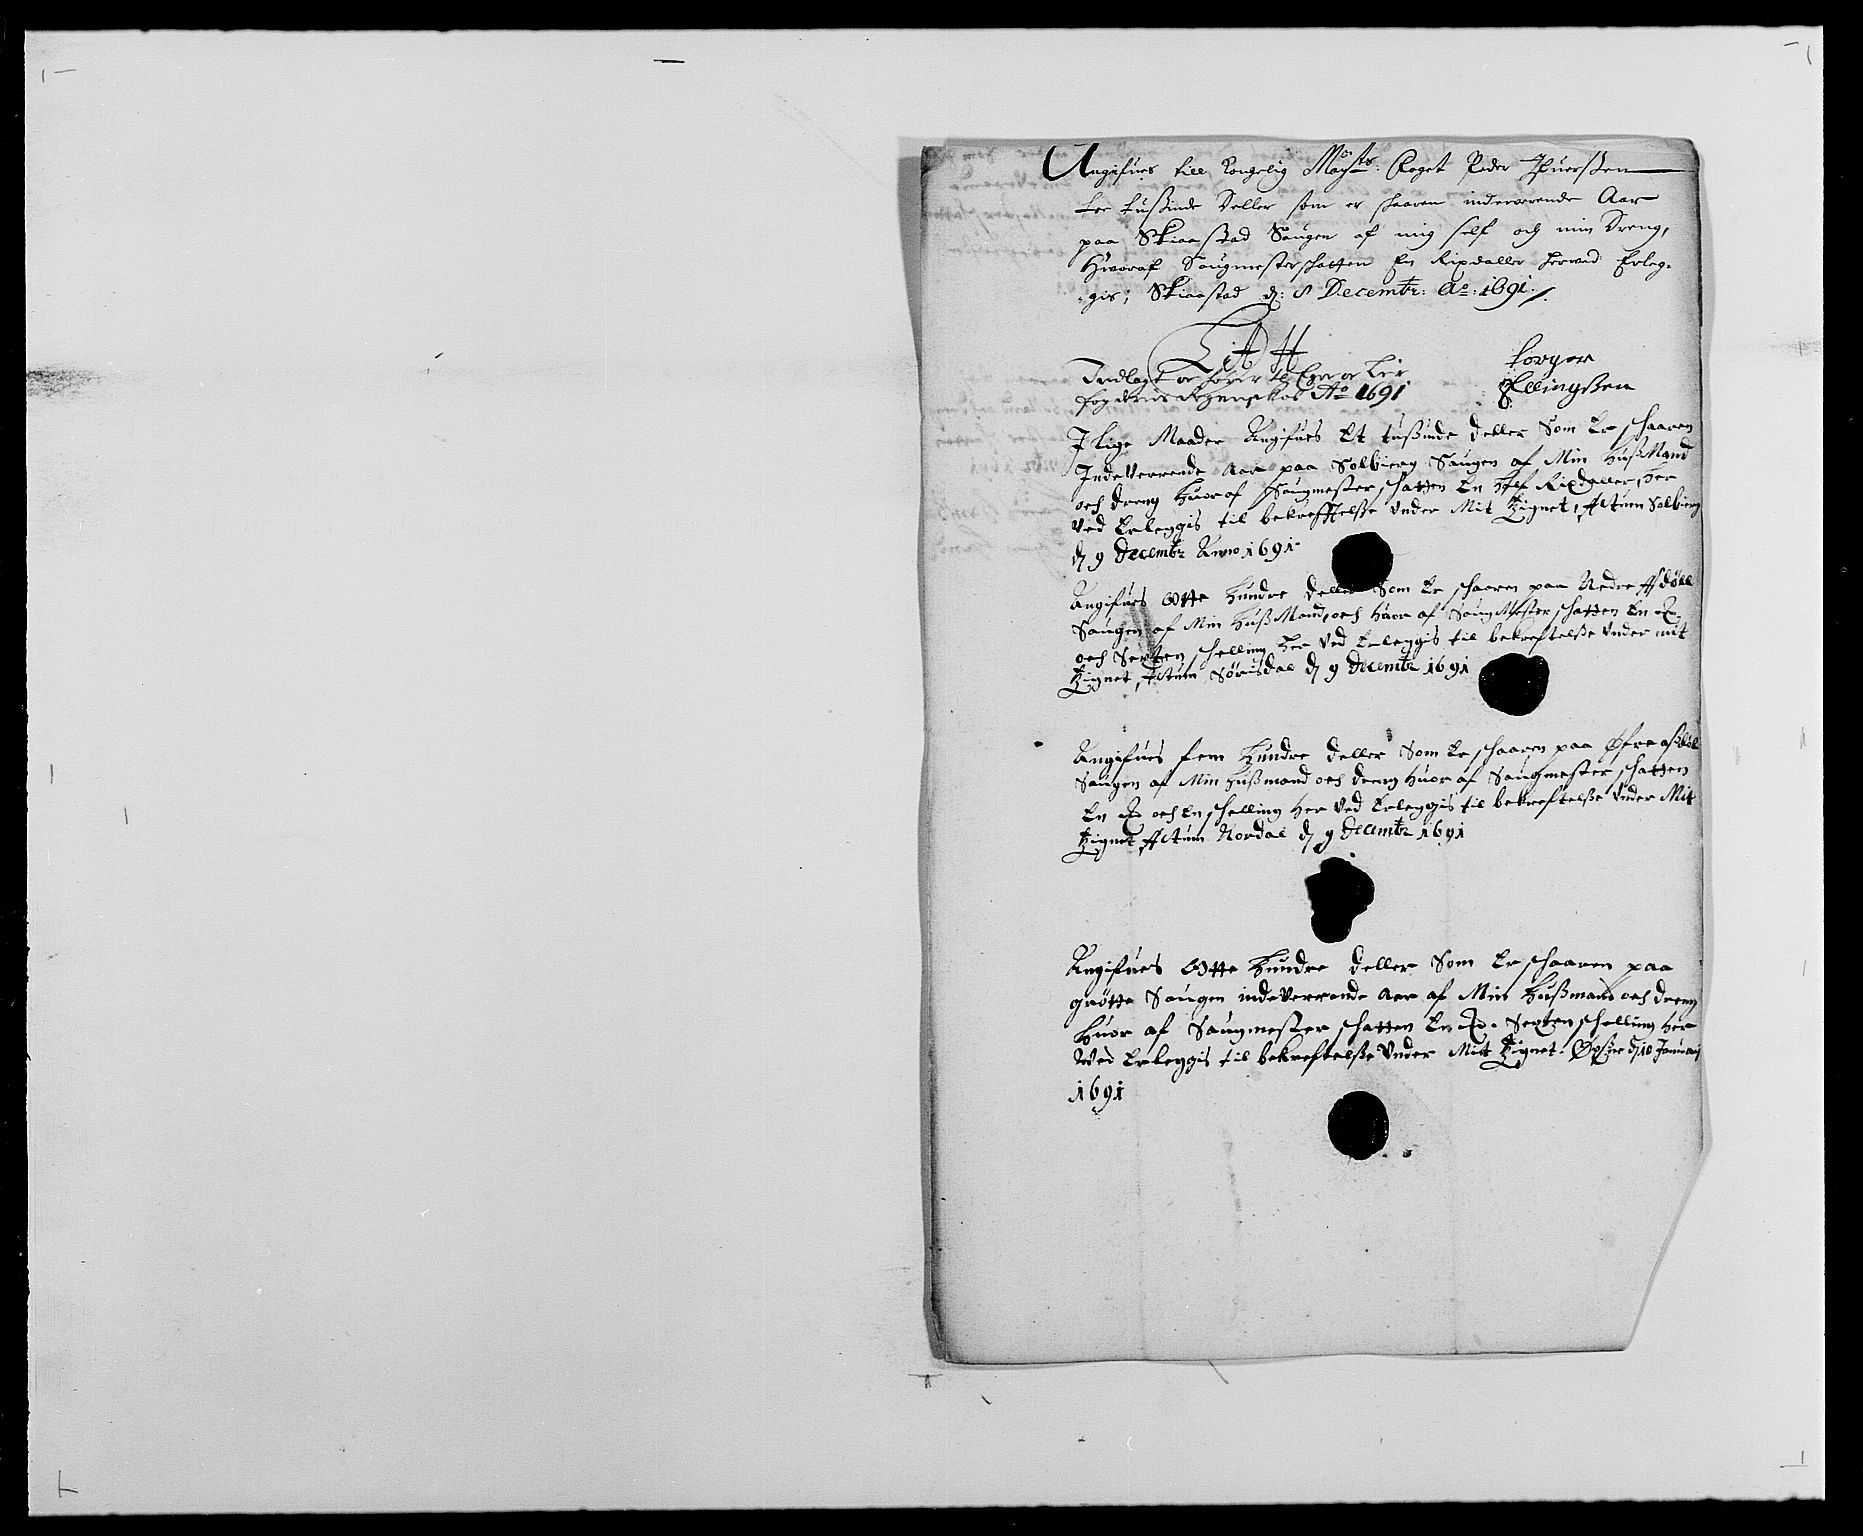 Angifues till Kongelig Mayts: Foget Peder Ifuerßen
toe tußinde Deller som er schaaren indewerende Aar
paa Skiaastad Saugen af mig self och min Dreng,
Hworaf Saugmesterschatten En Rixdaller herved Erleg-
gis; Skiaastad d: 8 Decembr: Ao: 1691.
Torger
Ellingßen
Indlagt er hører til Eger oc Lier
fogderies Regenskab Ao 1691
Lit H
J lige Maader Angifues Et tußinde deller Som Er schaaren
Inde Verrende Aar paa Solbierg Saugen af Min Huß Mand
och dreng Huor af Saugmester schatten En Half Rixdaller, her
Ved Erleggis til bekrefftelße Under Mit Zignet, Actum Solbierg
d 9 Decembr Anno 1691
Angifues Otte Hundre deller Som Er schaaren paa Nedre
Saugen af Min Huß Mand, och Huor af Saug Mester schatten En
och Sexten schelling her Ved Erleggis til bekreftelße Under mit
Zignet, Actum Sørisdal d 9 Decembr 1691
Angifues fem Hundre deller Som Er schaaren paa Øfre
Saugen af Min Hußmand och dreng Huor af Saugmester schatten
En och En schelling her Ved Erleggis til bekreftelße Under Mit
Zignet Actum Nordal d 9 Decembr 1691
Angifues Otte Hundre deller Som Er schaaren paa
grøtte Saugen indeVerrende Aar af Min Hußmand och dreng
Huor af Saugmester schatten En Sexten schelling her
Wed Erleggis til bekreftelße Under Mitt Zignet. d 10 Januarj
1691